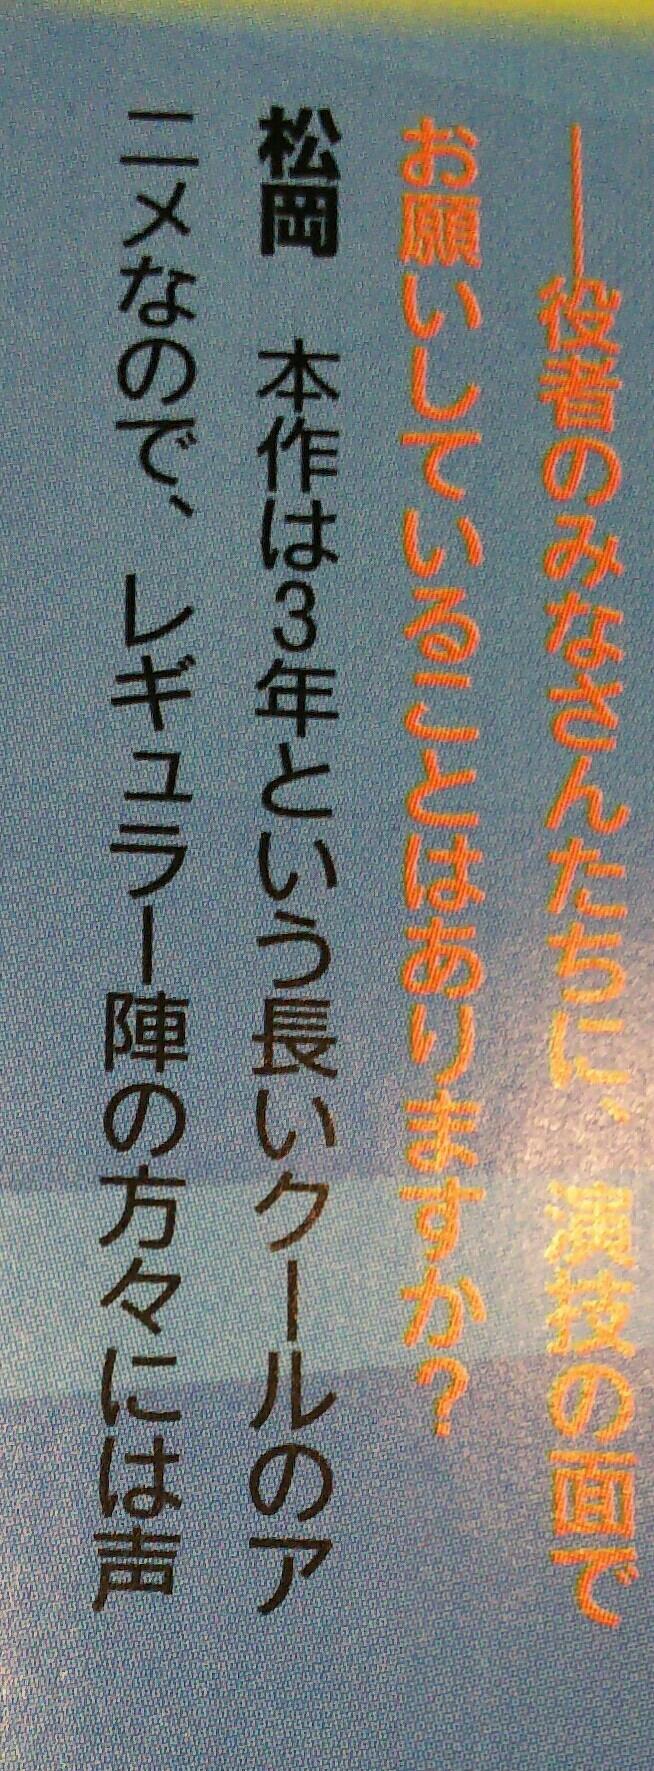 ――役者のみなさんたちに、演技の面で
お願いしていることはありますか？
松岡　本作は3年という長いクールのア
ニメなので、レギュラー陣の方々には声